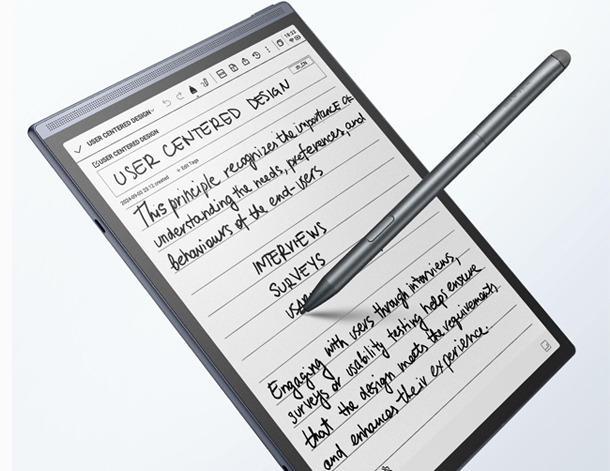 USER CENTERED DESIGN
18:23
USER CENTERED DESIGN
EN_CN
USER CENTERED DESIGN
2024-09-03 23:12 created + Edit Tags
This principle recognizes the importance of
understanding the needs, preferences, and
behaviours of the end-users
INTERVIEWS
SURVEYS
Engaging with users through interviews,
surveys or usability testing helps ensure
that the design meets the requirements
and enhances their experience.